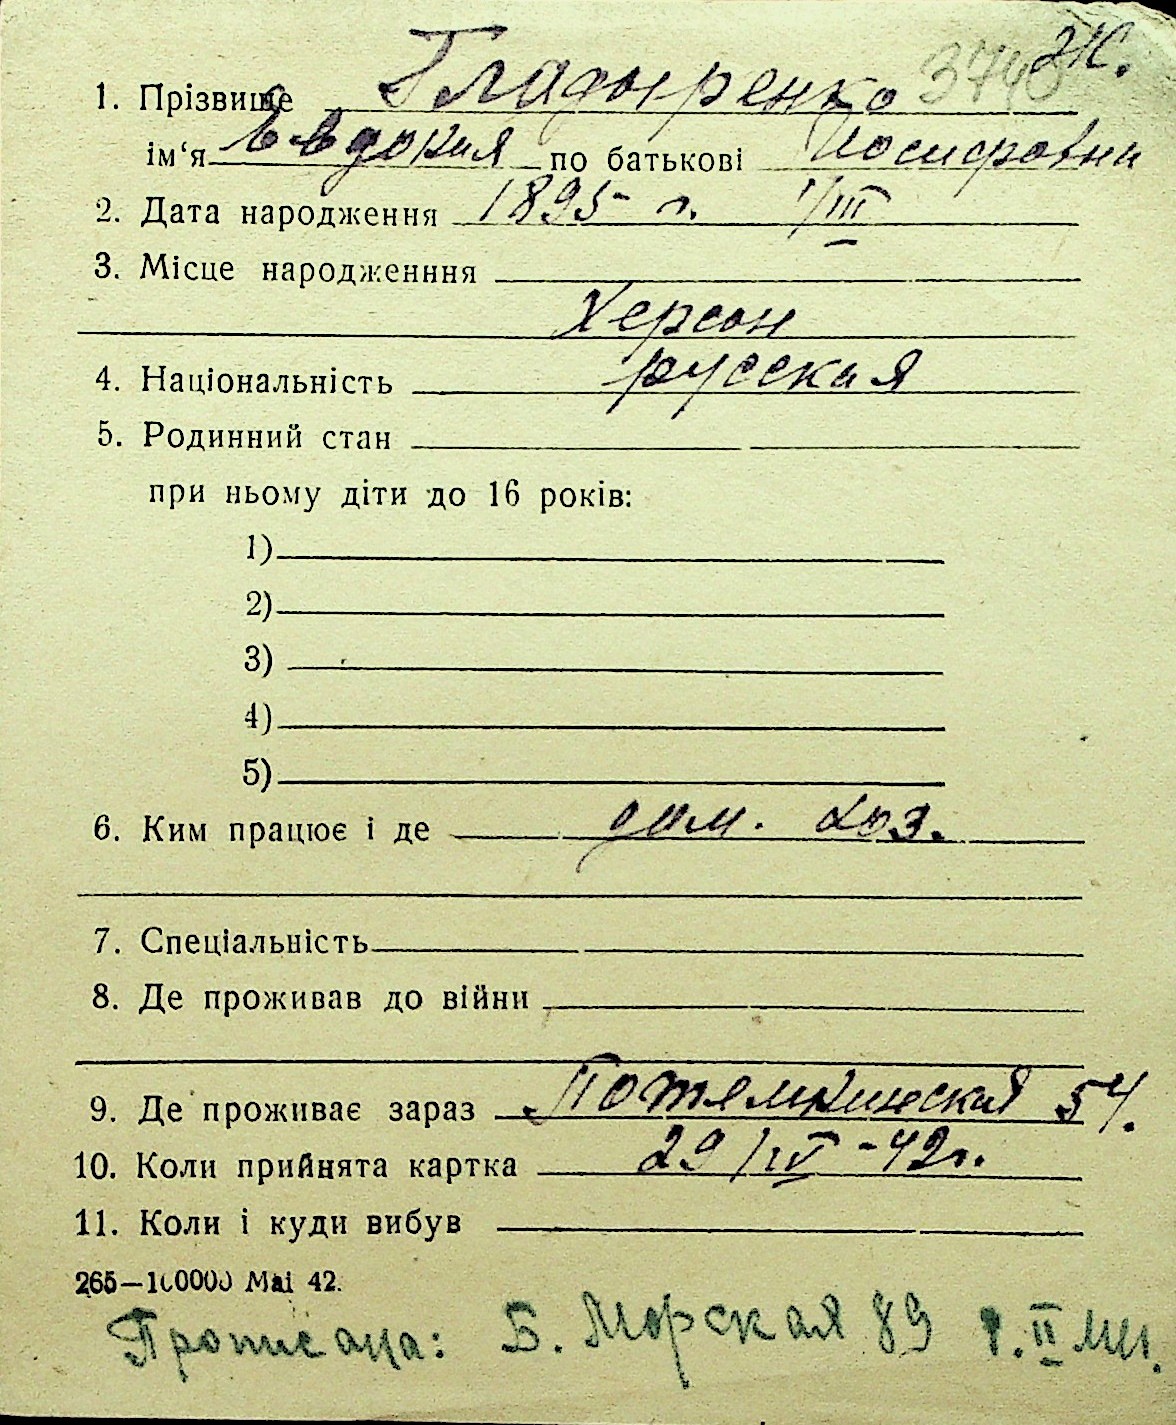 ж.
1. Прізвище Гладыренко 3748
ім‘я Евдокия по батькові Иосифовни
2. Дата народження 1895 г. 1/III
3. Місце народженння
Херсон
4. Національність русская
5. Родинний стан
при ньому діти до 16 років:
1)
2)
3)
4)
5)
6. Ким працює і де дом. хоз.
7. Спеціальність
8. Де проживав до війни
9. Де проживає зараз Потемкинская 54.
10. Коли прийнята картка 29/IV-42г.
11. Коли і куди вибув
265—100000 Маі 42.
Прописана: Б. Морская 89